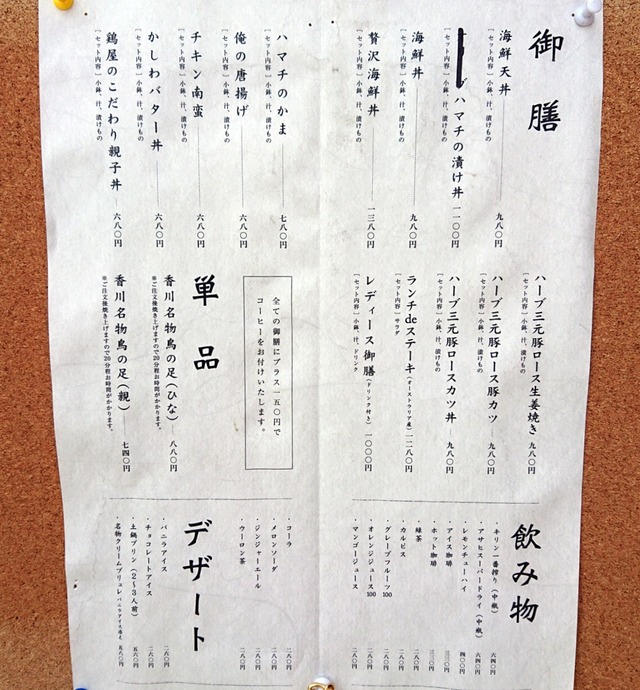 御膳
海鮮天丼 九八〇円
[セット内容]小鉢、汁、漬けもの
ハマチの漬け丼 一一〇〇円
[セット内容]小鉢、汁、漬けもの
海鮮丼 九八〇円
[セット内容]小鉢、汁、漬けもの
贅沢海鮮丼 一三八〇円
[セット内容]小鉢、汁、漬けもの
ハマチのかま 七八〇円
[セット内容]小鉢、汁、漬けもの
俺の唐揚げ 六八〇円
[セット内容]小鉢、汁、漬けもの
チキン南蛮 六八〇円
[セット内容]小鉢、汁、漬けもの
かしわバター丼 六八〇円
[セット内容]小鉢、汁、漬けもの
鶏屋のこだわり親子丼 六八〇円
[セット内容]小鉢、汁、漬けもの
ハーブ三元豚ロース生姜焼き 九八〇円
[セット内容]小鉢、汁、漬けもの
ハーブ三元豚ロース豚カツ 九八〇円
[セット内容]小鉢、汁、漬けもの
ハーブ三元豚ロースカツ丼 九八〇円
[セット内容]小鉢、汁、漬けもの
ランチdeステーキ(オーストラリア産)一二八〇円
[セット内容]サラダ
レディース御膳(ドリンク付き)一〇〇〇円
[セット内容]小鉢、汁、ドリンク
全ての御膳にプラス一五〇円で
コーヒーをお付けいたします。
単品
香川名物鳥の足(ひな) 八八〇円
※ご注文後焼き上げますので20分程お時間がかかります。
香川名物鳥の足(親) 七四〇円
※ご注文後焼き上げますので20分程お時間がかかります。
飲み物
・キリン一番搾り(中瓶) 六四〇円
・アサヒスーパードライ(中瓶) 六四〇円
・レモンチューハイ 四〇〇円
・アイス珈琲 三三〇円
・ホット珈琲 三三〇円
・緑茶 二八〇円
・カルピス 二八〇円
・グレープフルーツ100 二八〇円
・オレンジジュース100 二八〇円
・マンゴージュース 二八〇円
・コーラ 二八〇円
・メロンソーダ 二八〇円
・ジンジャーエール 二八〇円
・ウーロン茶 二八〇円
デザート
・バニラアイス 二六〇円
・チョコレートアイス 二六〇円
・土鍋プリン(2〜3人前) 五六〇円
・名物クリームブリュレ バニラアイス添え 五八〇円